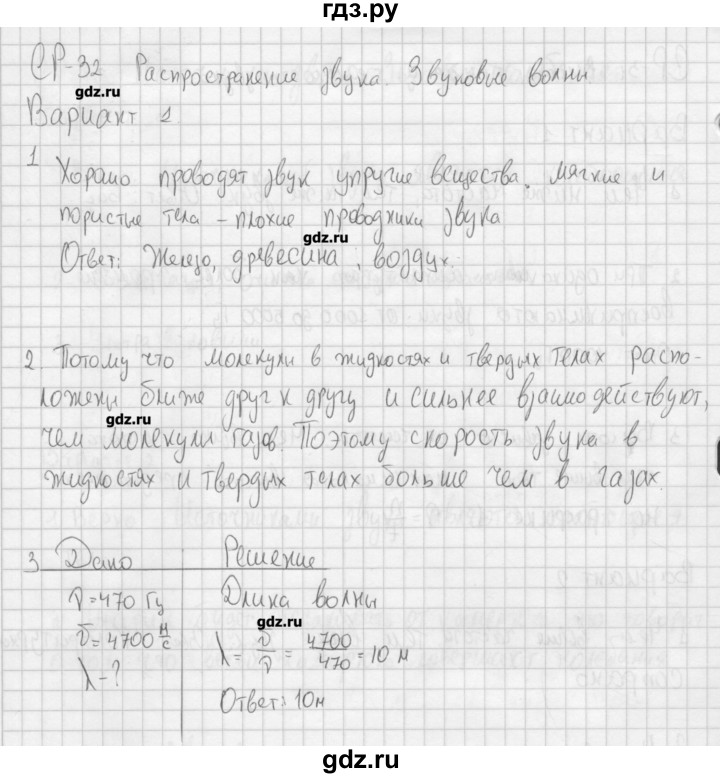 гдз.ру
СР-32 Распространение звука. Звуковые волны
gdz.ru
Вариант 1.
1 Хорошо проводят звук упругие вещества, мягкие и
пористые тела – плохие проводники звука
gdz.ru
Ответ: Железо, древесина, воздух.
2. Потому что молекули в жидкостях и твердых телах распо-
ложени ближе друг к другу и сильнее взаимодействуют,
gdz.ru
чем молекули газов. Поэтому скорость звука в
жидкостях и твердых телах больше чем в газах.
3 Дано Решение
ν=470 Гц Длина волны
gdz.ru
υ=4700 м/с λ = υ/ν = 4700/470 = 10 м
λ-?
Ответ: 10м
gdz.ru